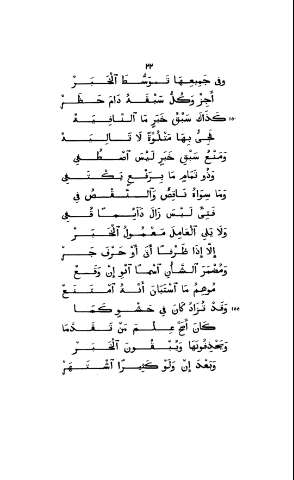 ٢٢
وفى جَمِيعِهَا تَوَسُّطَ ٱلْخَبَرْ
أَجِزْ وَكُلٌّ سَبْقَهُ دَامَ حَظَرْ
١٥٠ كَذَاكَ سَبْقُ خَبَرٍ مَا ٱلنَّافِيَهْ
فَجِئْ بِهَا مَتْلُوَّةً لَا تَالِيَهْ
وَمَنْعُ سَبْقِ خَبَرٍ لَيْسَ ٱصْطُفِى
وَذُو تَمَامٍ مَا بِرَفْعٍ يَكْتَفِى
وَمَا سِوَاهُ نَاقِصٌ وَٱلنَّقْصُ فِى
فَتِئَ لَيْسَ زَالَ دَآئِمًا قُفِى
وَلَا يَلِى ٱلْعَامِلَ مَعْمُولُ ٱلْخَبَرْ
إِلَّا إِذَا ظَرْفًا أَتَى أَوْ حَرْفَ جَرْ
وَمُضْمَرَ ٱلشَّأْنِ ٱسْمًا ٱنْوِ إِنْ وَقَعْ
مُوهِمُ مَا ٱسْتَبَانَ أَنَّهُ ٱمْتَنَعْ
١٥٥ وَقَدْ تُزَادُ كَانَ فِى حَشْوٍ كَمَا
كَانَ أَصَحَّ عِلْمَ مَنْ تَقَدَّمَا
وَيَحْذِفُونَهَا وَيُبْقُونَ ٱلْخَبَرْ
وَبَعْدَ إِنْ وَلَوْ كَثِيرًا ٱشْتَهَرْ